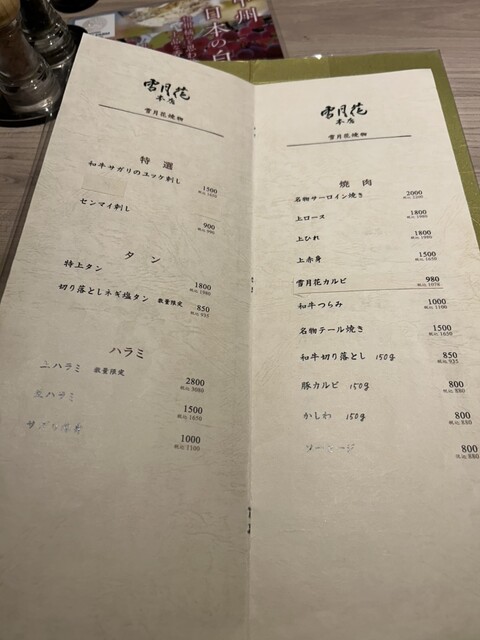 甲州
日本の白
雪月花
本店
雪月花焼物
特選
和牛サガリのユッケ刺し 1500
税込 1650
センマイ刺し 900
税込 990
タン
特上タン 1800
税込 1980
切り落としネギ塩タン 数量限定 850
税込 935
ハラミ
上ハラミ 数量限定 2800
税込 3080
並ハラミ 1500
税込 1650
1000
税込 1100
雪月花
本店
雪月花焼物
焼肉
名物サーロイン焼き 2000
税込 2200
上ロース 1800
税込 1980
上ひれ 1800
税込 1980
上赤身 1500
税込 1650
雪月花カルビ 980
税込 1078
和牛つらみ 1000
税込 1100
名物テール焼き 1500
税込 1650
和牛切り落とし 150g 850
税込 935
豚カルビ 150g 800
税込 880
かしわ 150g 800
税込 880
800
税込 880